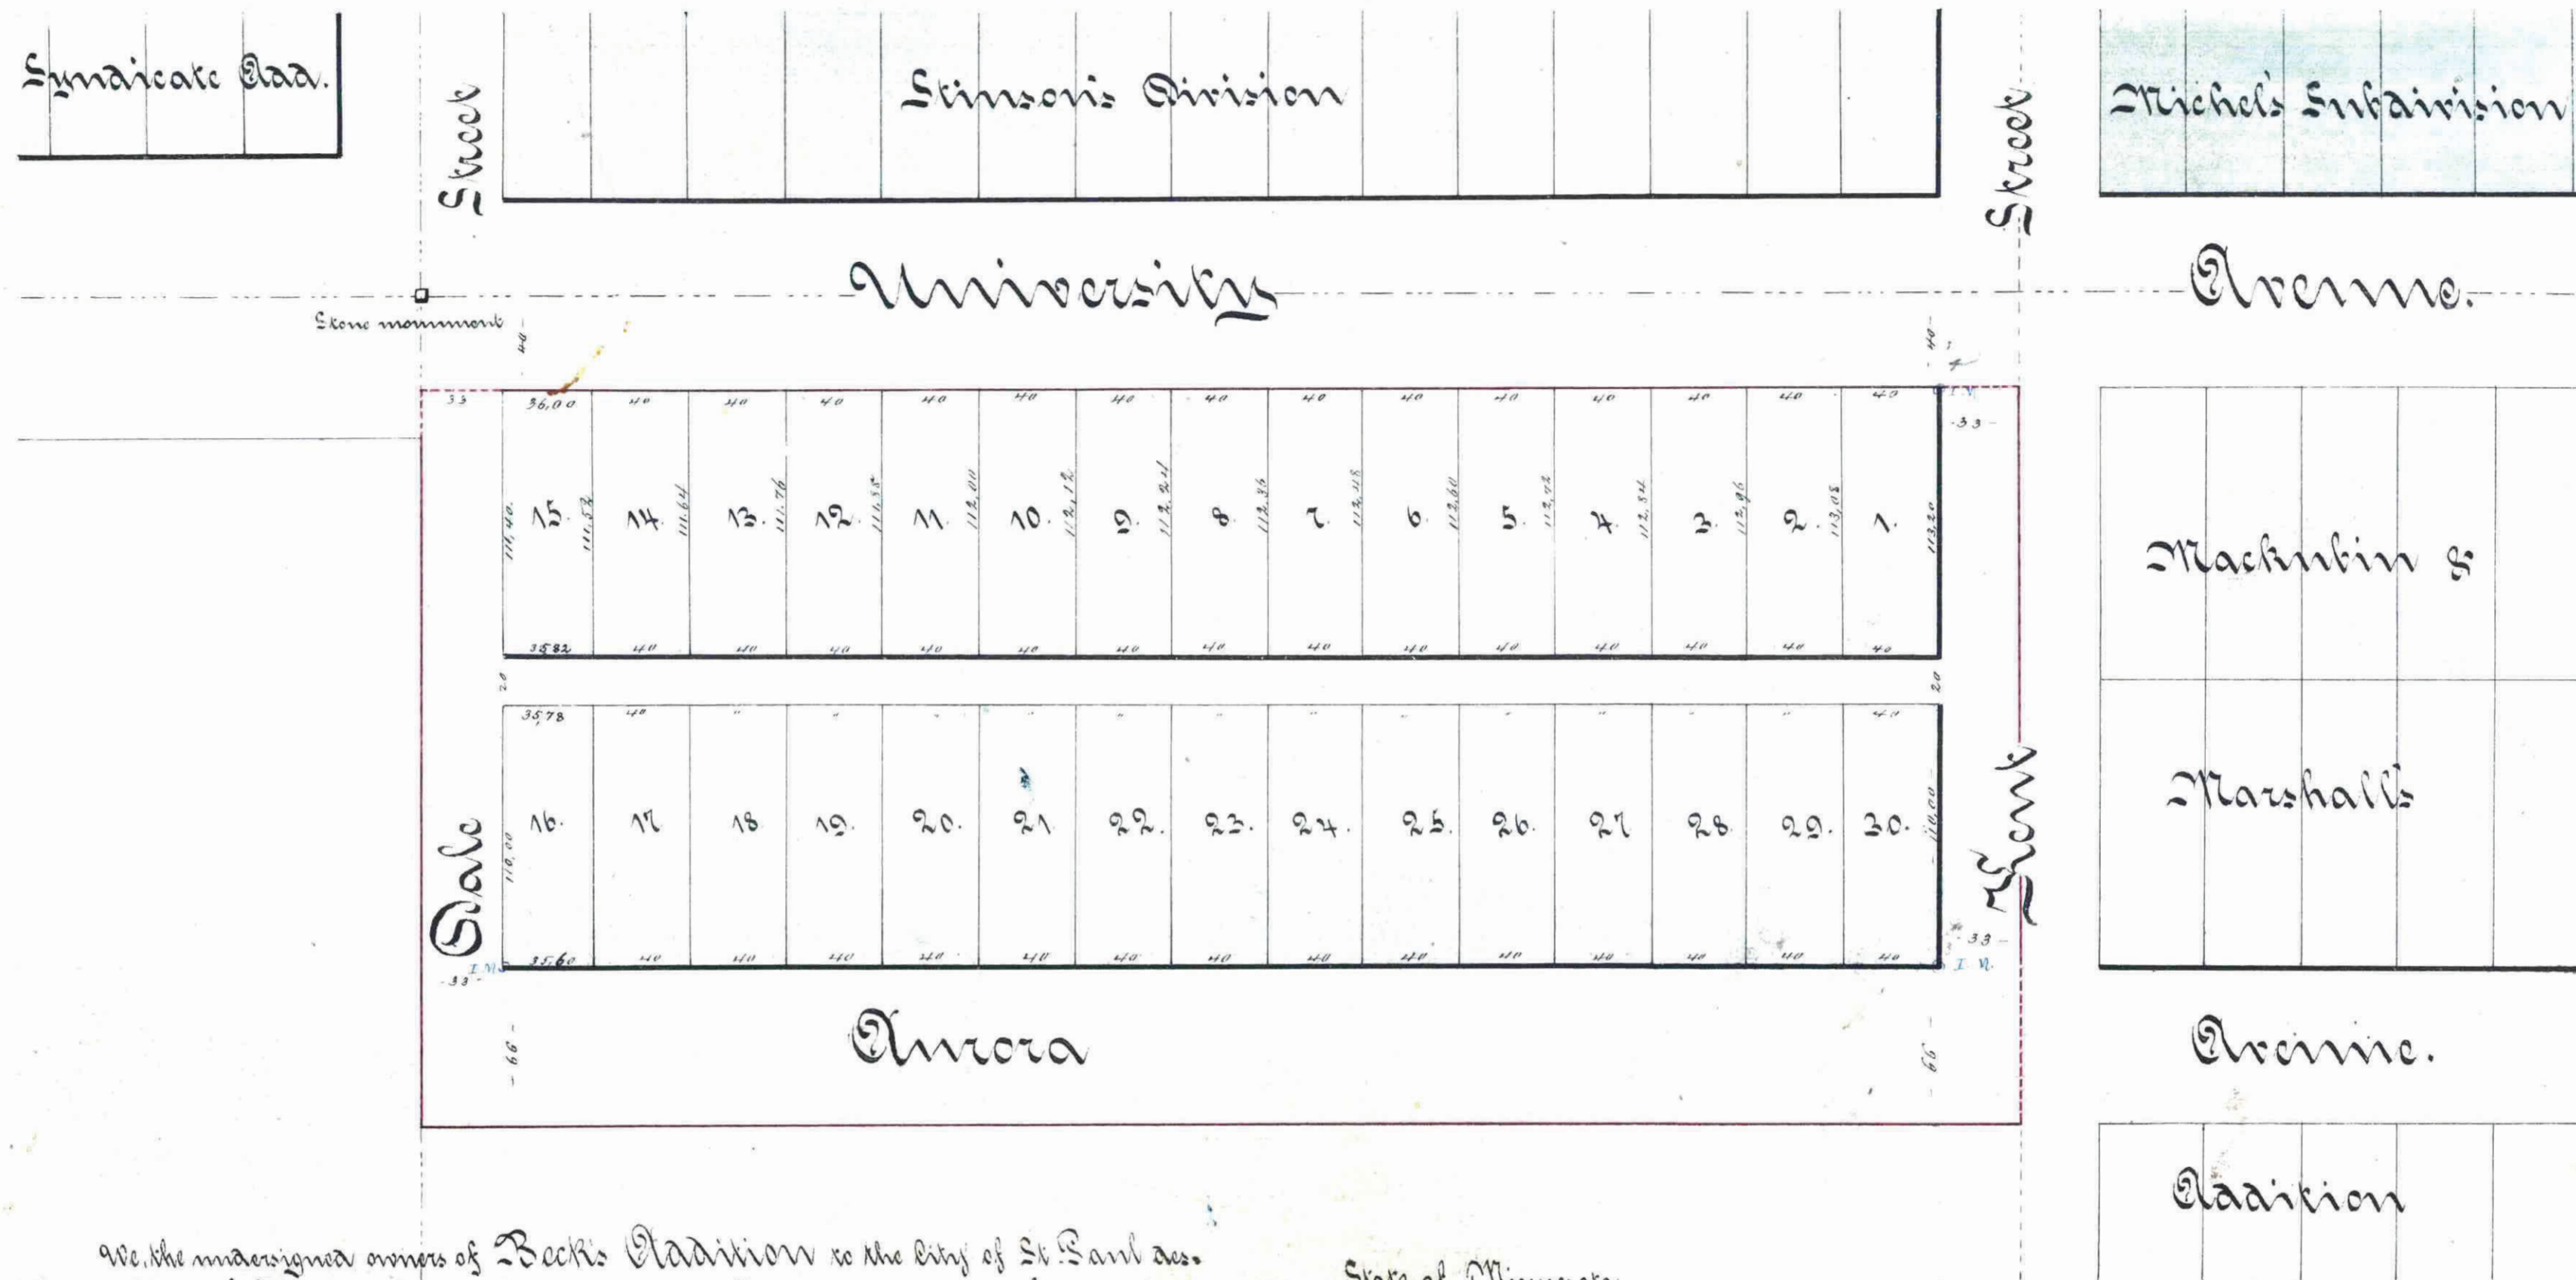 Syndicate Add.
Street
Stinson's Division
Street
Michel's Subdivision
University
Avenue.
Stone monument
40
40
33
36,00 40 40 40 40 40 40 40 40 40 40 40 40 40 40
I.M.
-33-
111,40. 15. 111.52 14. 111.64 13. 111.76 12. 111.88 11. 112,00 10. 112,12 9. 112.24 8. 112.36 7. 112.48 6. 112.60 5. 112,72 4. 112,84 3. 112,96 2. 113,08 1. 113,20
Mackubin &
35 82 40 40 40 40 40 40 40 40 40 40 40 40 40 40
20
20
35,78 40 " " " " " " " " " " " " 40
Dale
110,00 16. 17 18 19. 20. 21 22. 23. 24. 25. 26. 27 28 29. 30. -110,00-
Kent
Marshall's
I.M.
35,60 40 40 40 40 40 40 40 40 40 40 40 40 40 40
-33-
I.M.
-33-
-66-
Aurora
-66-
Avenue.
Addition
We, the undersigned owners of Beck's Addition to the City of St. Paul des-
State of Minnesota